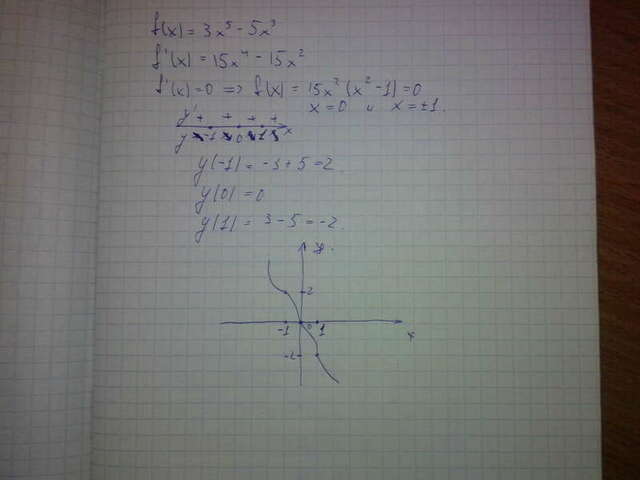 f(x) = 3x⁵ - 5x³
f'(x) = 15x⁴ - 15x²
f'(x) = 0 => f(x) = 15x²(x² - 1) = 0
x = 0 и x = ±1.
y' + + + +
y -1 0 1 x
y(-1) = -3 + 5 = 2.
y(0) = 0
y(1) = 3 - 5 = -2.
y.
2
-1 0 1
x
-2